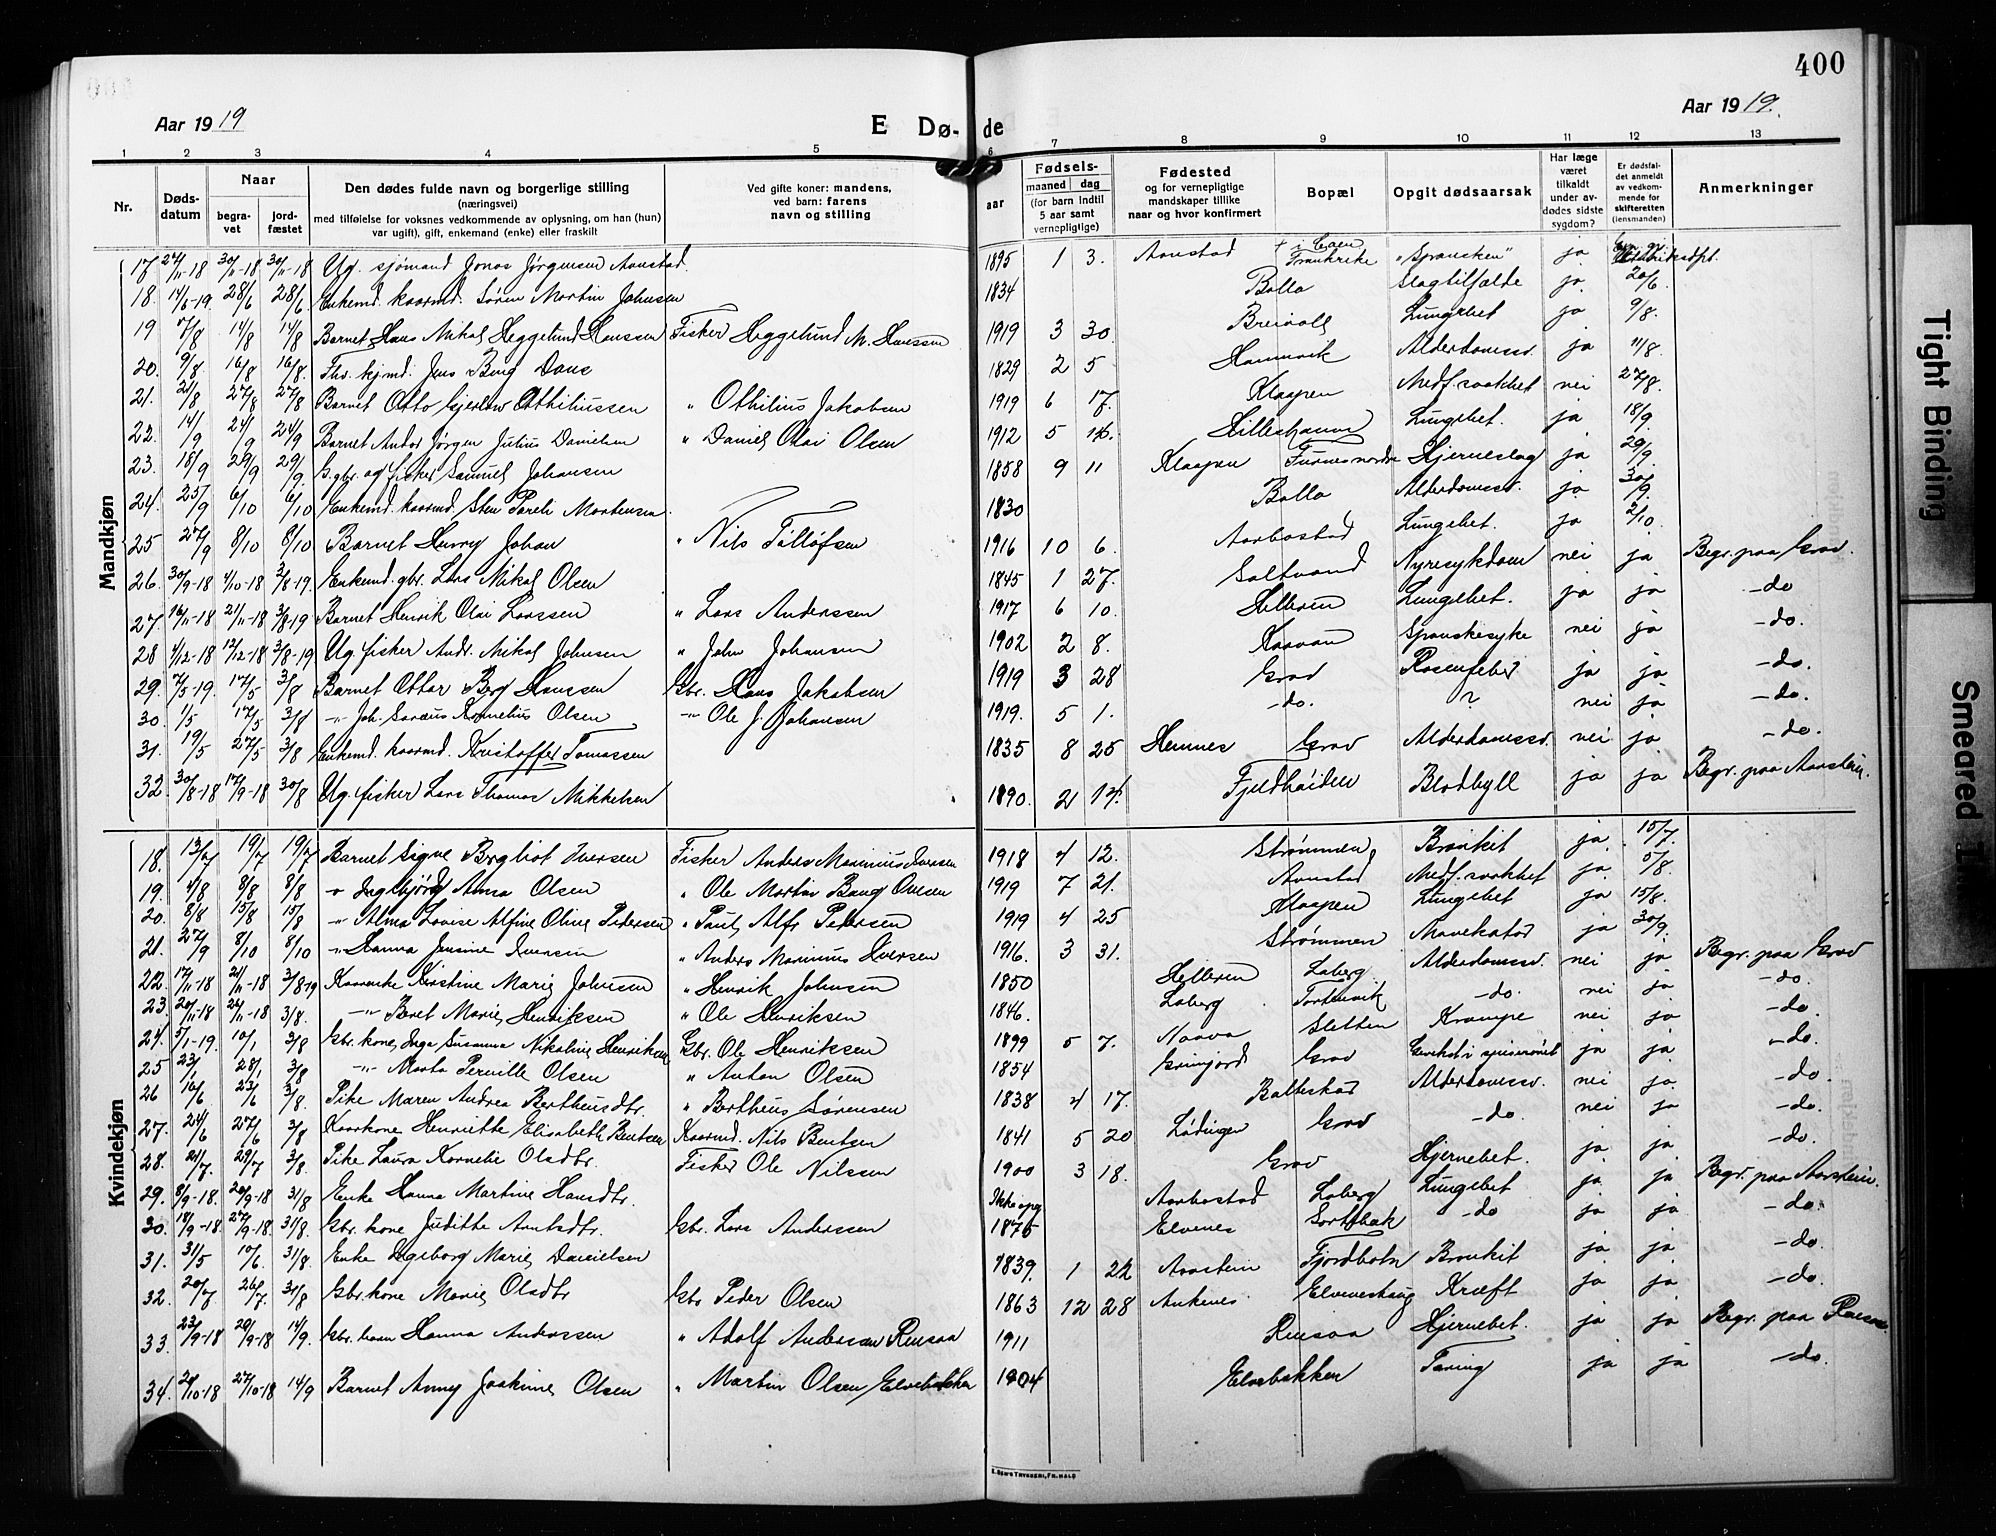 400
Aar 1919
E Dø-
de
Aar 1919.
1 2 3 4 5 6 7 8 9 10 11 12 13
Nr.
Døds-datum
Naar
begra-vet
jord-fæstet
Den dødes fulde navn og borgerlige stilling
(næringsvei)
med tilføielse for voksnes vedkommende av oplysning, om han (hun)
var ugift), gift, enkemand (enke) eller fraskilt
Ved gifte koner: mandens,
ved barn: farens
navn og stilling
Fødsels-
aar
maaned
dag
(for barn indtil
5 aar samt
vernepligtige)
Fødested
og for vernepligtige
mandskaper tillike
naar og hvor konfirmert
Bopæl
Opgit dødsaarsak
Har læge
været
tilkaldt
under av-
dødes sidste
sygdom?
Er dødsfal-
det anmeldt
av vedkom-
mende for
skifteretten
(lensmanden)
Anmerkninger
Mandkjøn
17 27/11-18 30/11-18 30/11-18 Ug. sjømand Jonas Jørgensen Aanstad. 1895 1 3. Aanstad + i Caen Frankrike "Spansken" ja
18. 14/6-19 28/6 28/6 Enkemd. kaarmd. Søren Martin Johnsen 1834 Bolla Slagtilfælde ja 20/6
19 7/8 14/8 14/8 Barnet Hans Mikal Heggelund Hanssen Fisker Heggelund M. Hanssen 1919 3 30 Breivoll Lungebet ja 9/8.
20. 9/8 16/8 16/8. Fhv. kjmd. Jens Bing Dons 1829 2 5 Hamnvik Alderdomssv. ja 11/8.
21. 21/8 27/8 27/8 Barnet Otto Gjerløw Otthiliussen " Othilius Jakobsen 1919 6 17. Klaapen Medf. svakhet nei 27/8.
22. 14/9 24/9 24/9 Barnet Andor Jørgen Julius Danielsen " Daniel Olai Olsen 1912 5 14. Hilleshamn Lungebet. ja 18/9.
23. 18/9 29/9 29/9. G.gbr. og fisker Samuel Johansen 1858 9 11 Klaapen Furnesnordre Hjerneslag ja 29/9.
24. 25/9 6/10 6/10 Enkemd. kaarmd. Sten Pareli Mortensen. 1830 Bolla Alderdomssv. ja 30/9.
25 27/9 8/10 8/10 Barnet Henry Johan " Nils Tølløfsen 1916 10 6. Aarbostad Lungebet. ja 2/10.
26. 30/9-18 4/10-18 3/8-19. Enkemd. gbr. Lars Mikal Olsen 1845 1 27. Saltvand Nyresykdom nei ja Begr. paa Grov.
27. 16/11-18 21/11-18 3/8-19 Barnet Henrik Olai Larssen " Lars Anderssen 1917 6 10. Helleren Lungebet. ja ja -do
28 4/12-18 12/12-18 3/8-19 Ug. fisker Andr. Mikal Johnsen " John Johansen 1902 2 8. Kaavan Spanskesyke nei ja -do.
29. 7/5-19. 17/5 3/8 Barnet Ottar Berg Hanssen Gbr. Hans Jakobsen 1919 3 28 Grov Rosenfeber ja ja -do.
30. 1/5 17/5 3/8 -"- Joh. Kornelius Olsen -"- Ole J. Johansen 1919. 5 1. -do. ? nei ja -do.
31. 19/5 27/5 3/8 Enkemd. kaarmd. Kristoffer Tomassen 1835 8 25 Hemnes Grov Alderdomssv. nei ja -do.
32 30/8-18 17/9-18 30/8 Ug. fisker Lars Thomas Mikkelsen 1890. 2 14. Fjeldhøiden Blodhyll ja ja Begr. paa Aarstein.
Kvindekjøn
18. 13/7 19/7 19/7 Barnet Signe Bergliot Iversen Fisker Anders Marinius Iversen 1918 4 12. Strømmen Bronkit ja. 15/7.
19. 4/8 8/8 8/8 -"- Ingebjørg Anna Olsen " Ole Martin Bang Olsen 1919 7 21. Aanstad Medf. svakhet ja 5/8.
20. 8/8 15/8 15/8 -"- Alma Lovise Alfine Oline Pedersen " Paul Alfr. Pedersen 1919 4 25 Klaapen Lungebet ja 15/8.
21. 27/9 8/10 8/10 -"- Hanna Jensine Iversen " Anders Marinius Iversen 1916. 3 31. Strømmen Mavekatar ja 30/9.
22. 17/11-18 21/11-18 3/8-19 Kaarenke Kirstine Marie Johnsen " Henrik Johnsen 1850 Helleren Laberg Alderdomssv. nei ja Begr. paa Grov
23. 20/11-18 24/11-18 3/8. -"- Beret Marie Henriksen " Ole Henriksen 1846. Laberg Tortenvik -do. nei ja -do.
24. 5/1-19. 10/1 3/8 Gbr. kone Inga Susanna Nikoline Henriksen Gbr. Ole Henriksen 1899 5 7. Naava Sletten Krampe nei ja -do.
25 23/1 28/1 3/8 -"- Marta Pernille Olsen " Anton Olsen 1854 Grov ja ja -do.
26 16/6 23/6 3/8. Pike Maren Andrea Bertheusdtr. " Bertheus Sørensen 1838 4 17. Balteskar Alderdomssv. nei ja. -do.
27. 24/6 27/6 3/8 Kaarkone Henriette Elisabeth Bentsen Kaarmd. Nils Bentsen 1841 5 20 Lødingen Grov -do. nei ja -do.
28. 21/7. 29/7 3/8. Pike Laura Kornelie Olsdtr. Fisker Ole Nilssen 1900 3 18. Grov Hjernebet. ja ja. -do.
29. 8/9-18. 20/9-18 31/8 Enke Hanna Martine Hansdtr. Ikke opg Aarbostad Laberg Lungebet ja ja Begr. paa Aarstein.
30. 18/9-18. 27/9-18. 31/8. Gbr. kone Juditte Arntsdtr. Gbr. Lars Anderssen 1875 Elvenes Sørtbak -do ja ja -do.
31. 31/5 10/6. 31/8. Enke Ingeborg Marie Danielsen 1839. 1 22 Aarstein Fjordbotn Bronkit ja ja -do.
32. 20/7 26/7. 31/8 Gbr. kone Marie Olsdtr Gbr Peder Olsen 1863 12 28 Ankenes Elveneshaug Kræft ja ja -do.
33. 23/9-18 29/9-18 14/9. Gbr. barn Hanna Anderssen " Adolf Andersen Rensaa 1911 Rensaa Hjernebet. ja ja Begr. paa
34. 21/10-18 27/10-18 14/9 Barnet Anny Joakime Olsen " Martin Olsen, Elvebakken 1904 Elvebakken Tæring ja ja -do.
E. SEM'S TRYKKERI, FR. HALD
Tight Binding
Smeared